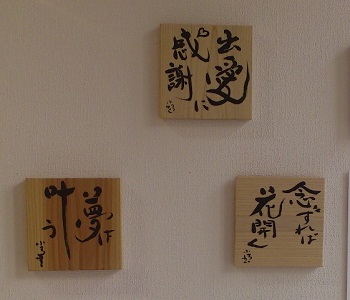 出愛に
感謝
夢は
叶う
念ずれば
花開く